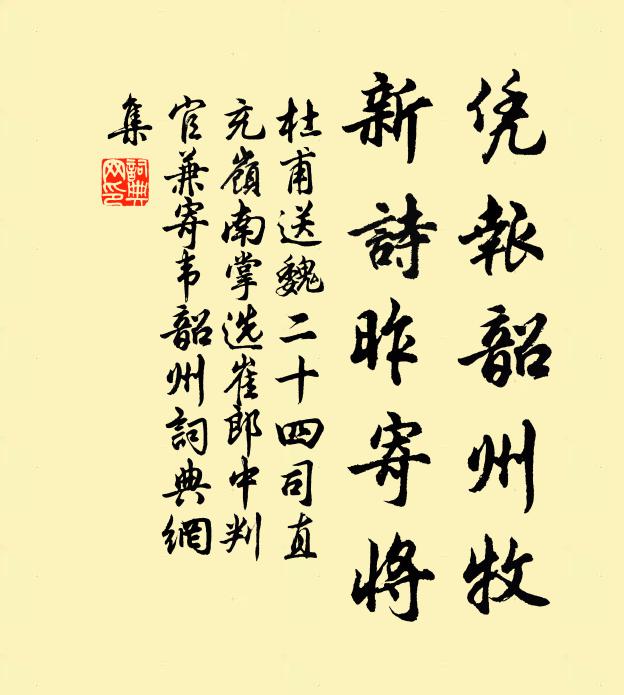 凭報韶州牧
新詩昨寄將
杜甫送魏二十四司直
充嶺南掌選崔郎中判
官兼寄韦韶州詞典網
集
詞典
网印